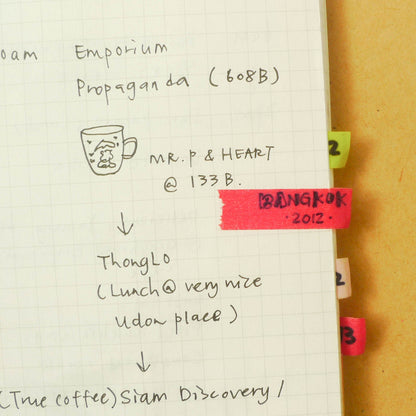 oam Emporium
Propaganda (608B)
MR. P & HEART
@ 133 B.
BANGKOK
·2012·
ThongLo
(Lunch @ very nice
Udon place)
(True coffee) Siam Discovery /
2
2
3